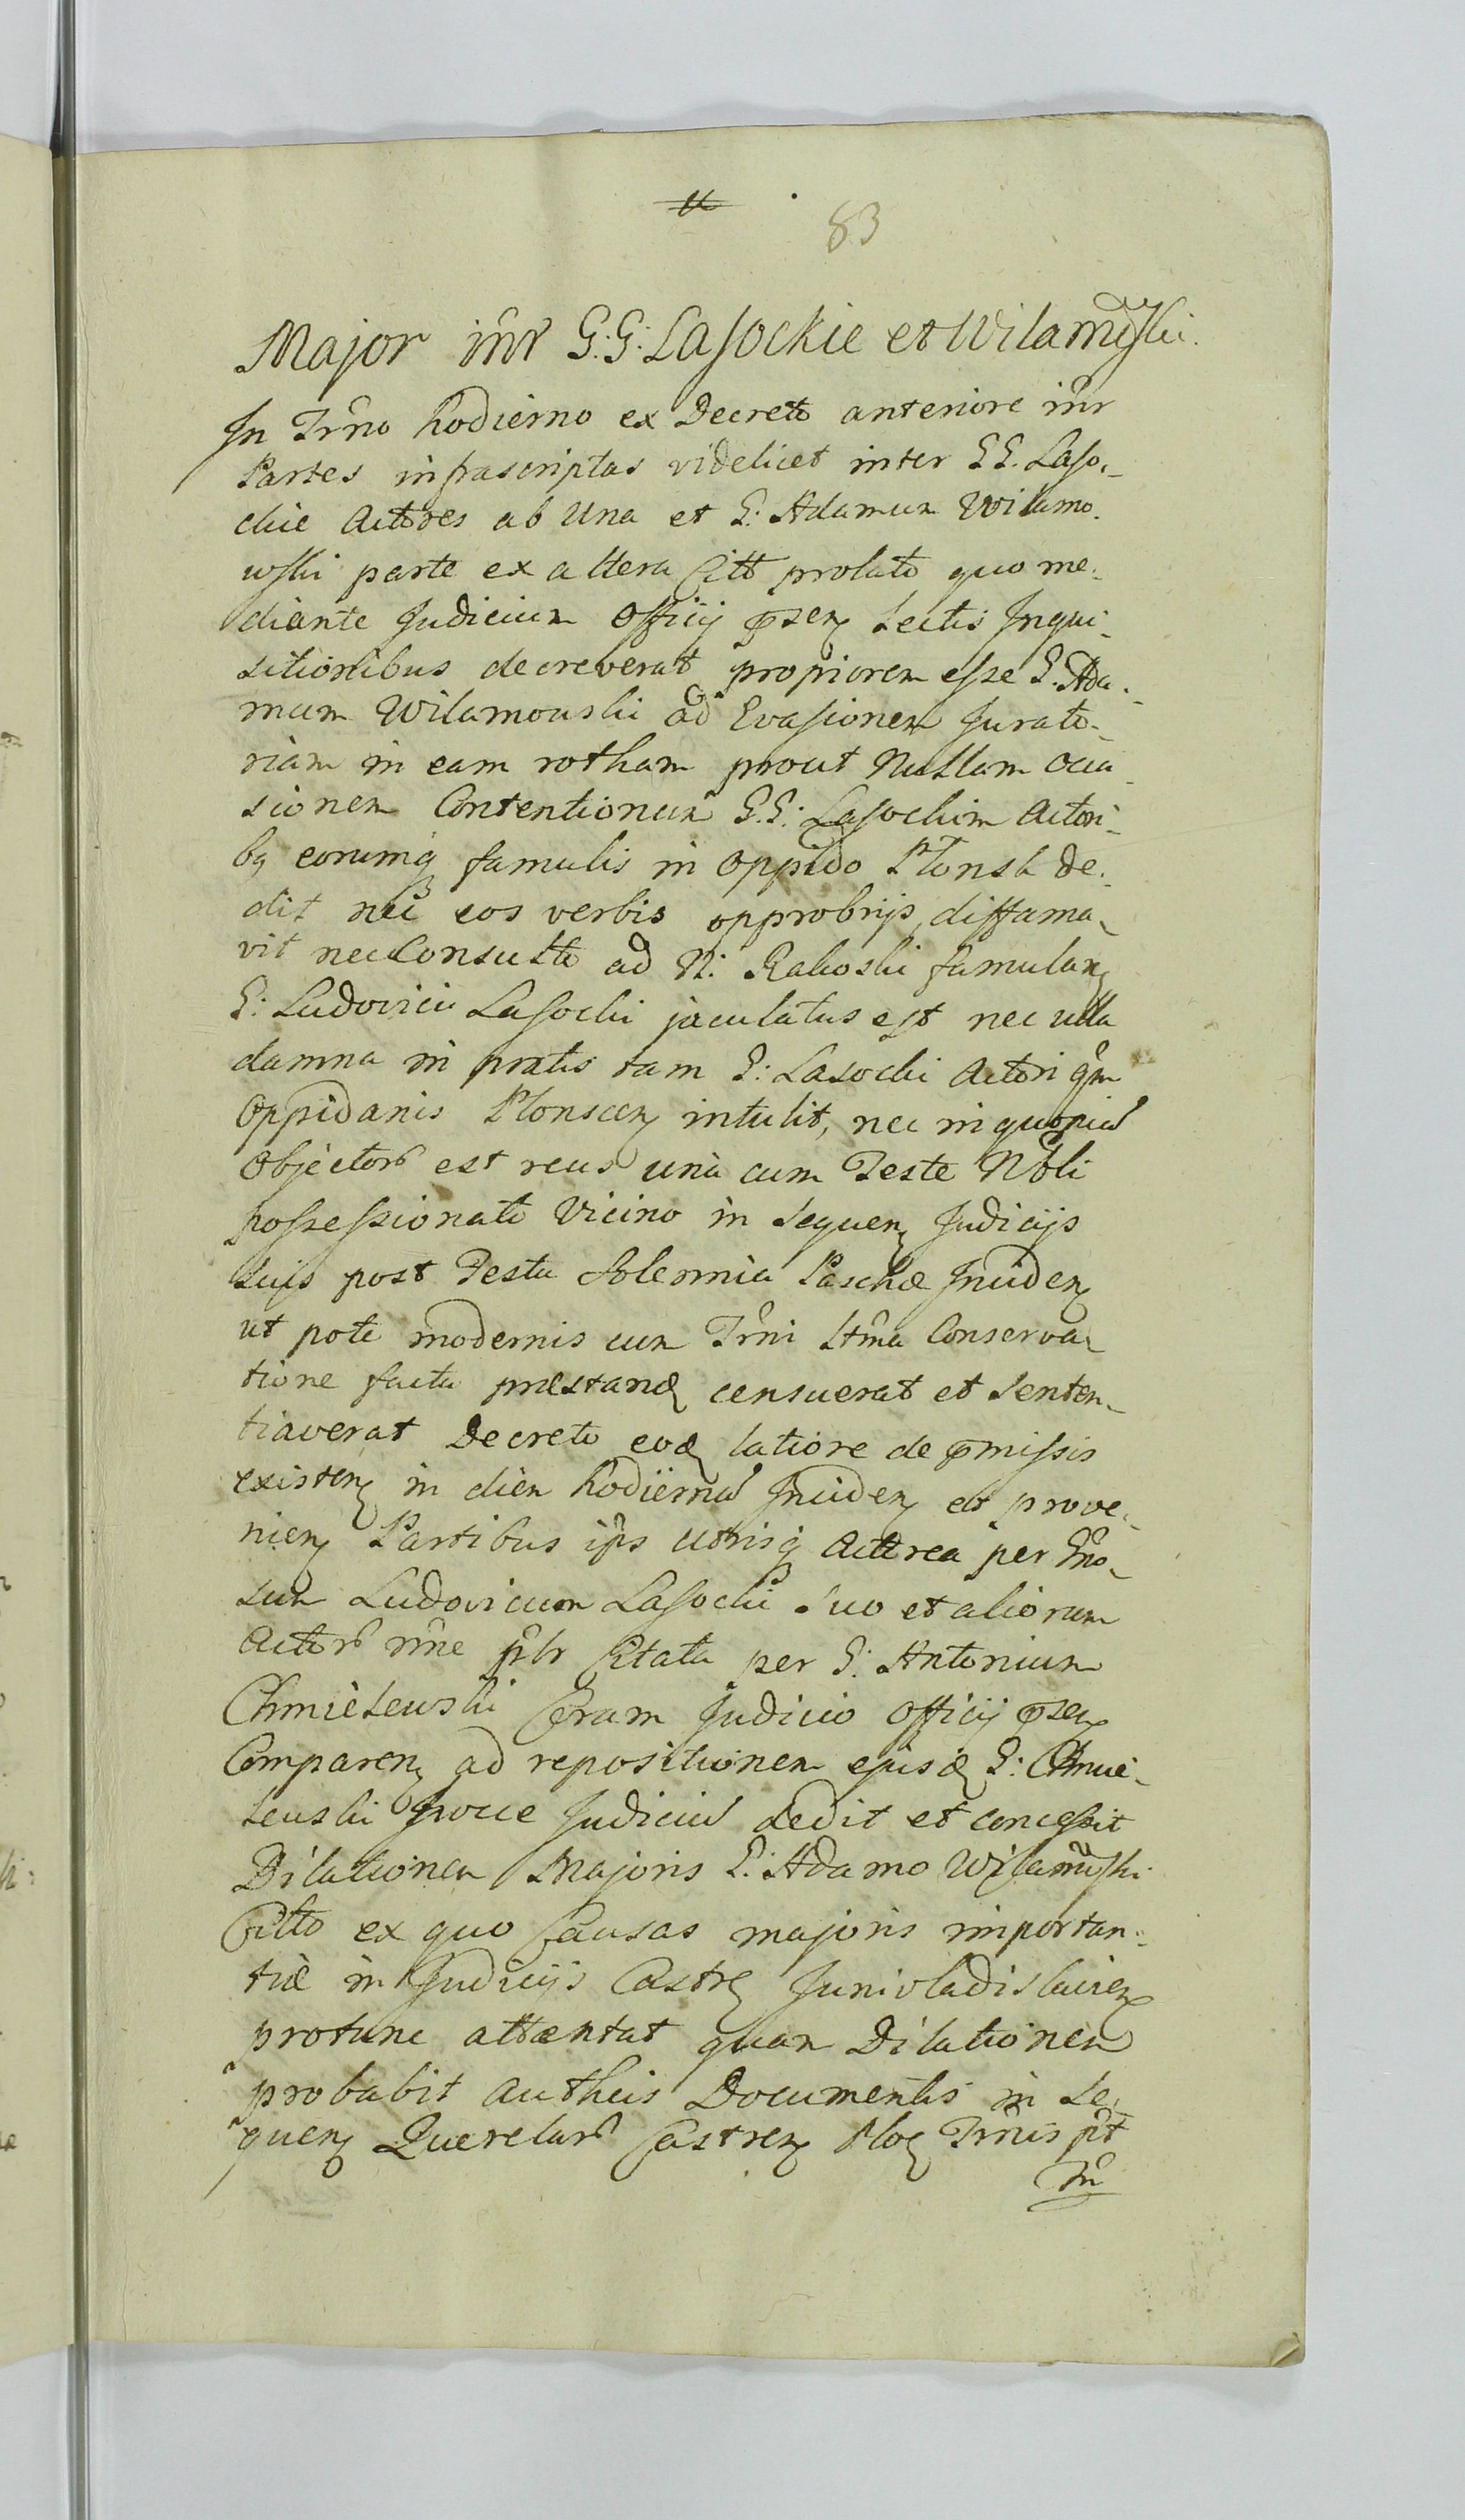 83
Major inr G: G: Lasockie et Wilamowski.
In Trno hodierno ex Decreto anteriore inr
Partes infrascriptas videlicet inter GG. Laso-
ckie Actores ab Una et G: Adamum Wilamo-
wski parte ex altera Citt prolato quo me-
diante Judicium Officij psen Lectis Inqui-
sitionibus decreverat propiorem esse G. Ada-
mum Wilamowski ad Evasionem Jurato-
riam in eam rotham prout Nullam occa-
sionem Contentionum G. G: Lasockim Actori-
bq eorumq famulis in Oppido Płonsk de-
dit nec eos verbis opprobrijs diffama-
vit nec Consulto ad N: Rakoski famulan
G: Ludovici Lasocki jaculatus est nec ulla
damna in pratis tam G: Lasocki Actori qm
Oppidanis Płonscen intulit, nec in quopiam
Objector est reus una cum Teste Nobli
possessionato Vicino in sequen Judicijs
suijs post Festa Solennia Paschæ Inciden
ut pote modernis cum Trni Ltma Conserva-
tione facta præstand censuerat et senten-
tiaverat Decreto eod latiore de pmissis
existen in diem hodiernam Inciden et prove-
nien Partibus ips utrisq Actorea per Gno-
sum Ludovicum Lasocki suo et aliorum
Actor nne plr Citata per G: Antonium
Chmielewski Coram Judicio Officij psen
Comparen ad repositionem ejusd G: Chmie-
lewski Judicium dedit et concessit
Dilationem Majoris G: Adamo Wilamowski
Citto ex quo Causas majoris importan-
tiæ in Judicijs Castr Junivladislavien
protunc attentat quam Dilationem
probabit autheis Documentis in se-
quen Querelar Castren Ploc Trnis pt
In